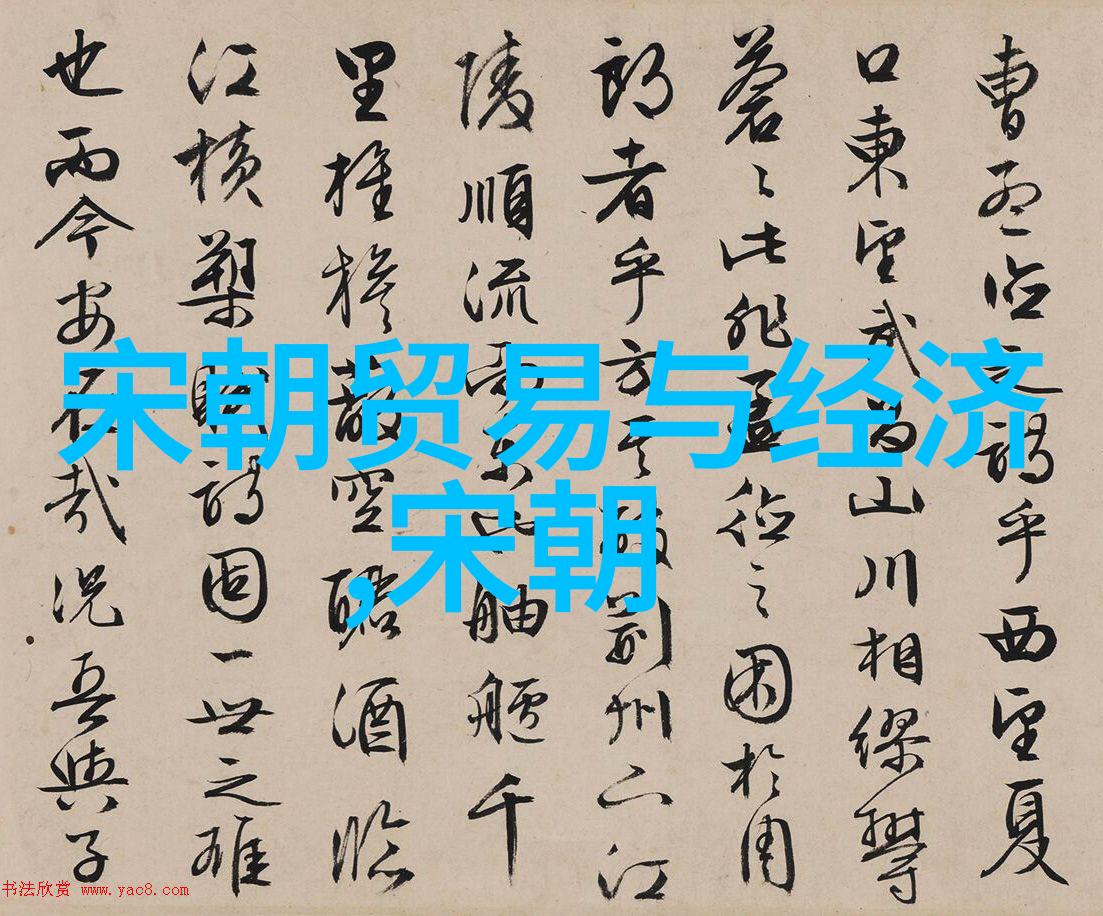 曹孟德之詩乎西望夏
口東望武昌山川相繆鬱
蒼々此非孟德之困於周
郎者乎方其破荊州下江
陵順流而東也舳艫千
里旌旗蔽空釃酒臨
江橫槊賦詩固一世之雄
也而今安在哉況吾與子
宋朝贸易与经济
,宋朝
书法欣赏 www.yac8.com